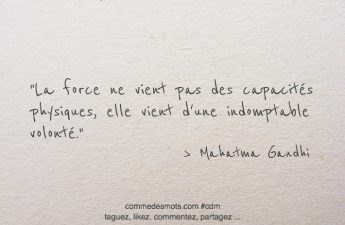 "La force ne vient pas des capacités
physiques, elle vient d'une indomptable
volonté."
> Mahatma Gandhi
commedesmots.com #cdm
taguez, likez, commentez, partagez ...